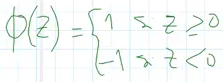 φ(z) = { 1 si z ≥ 0
-1 si z < 0